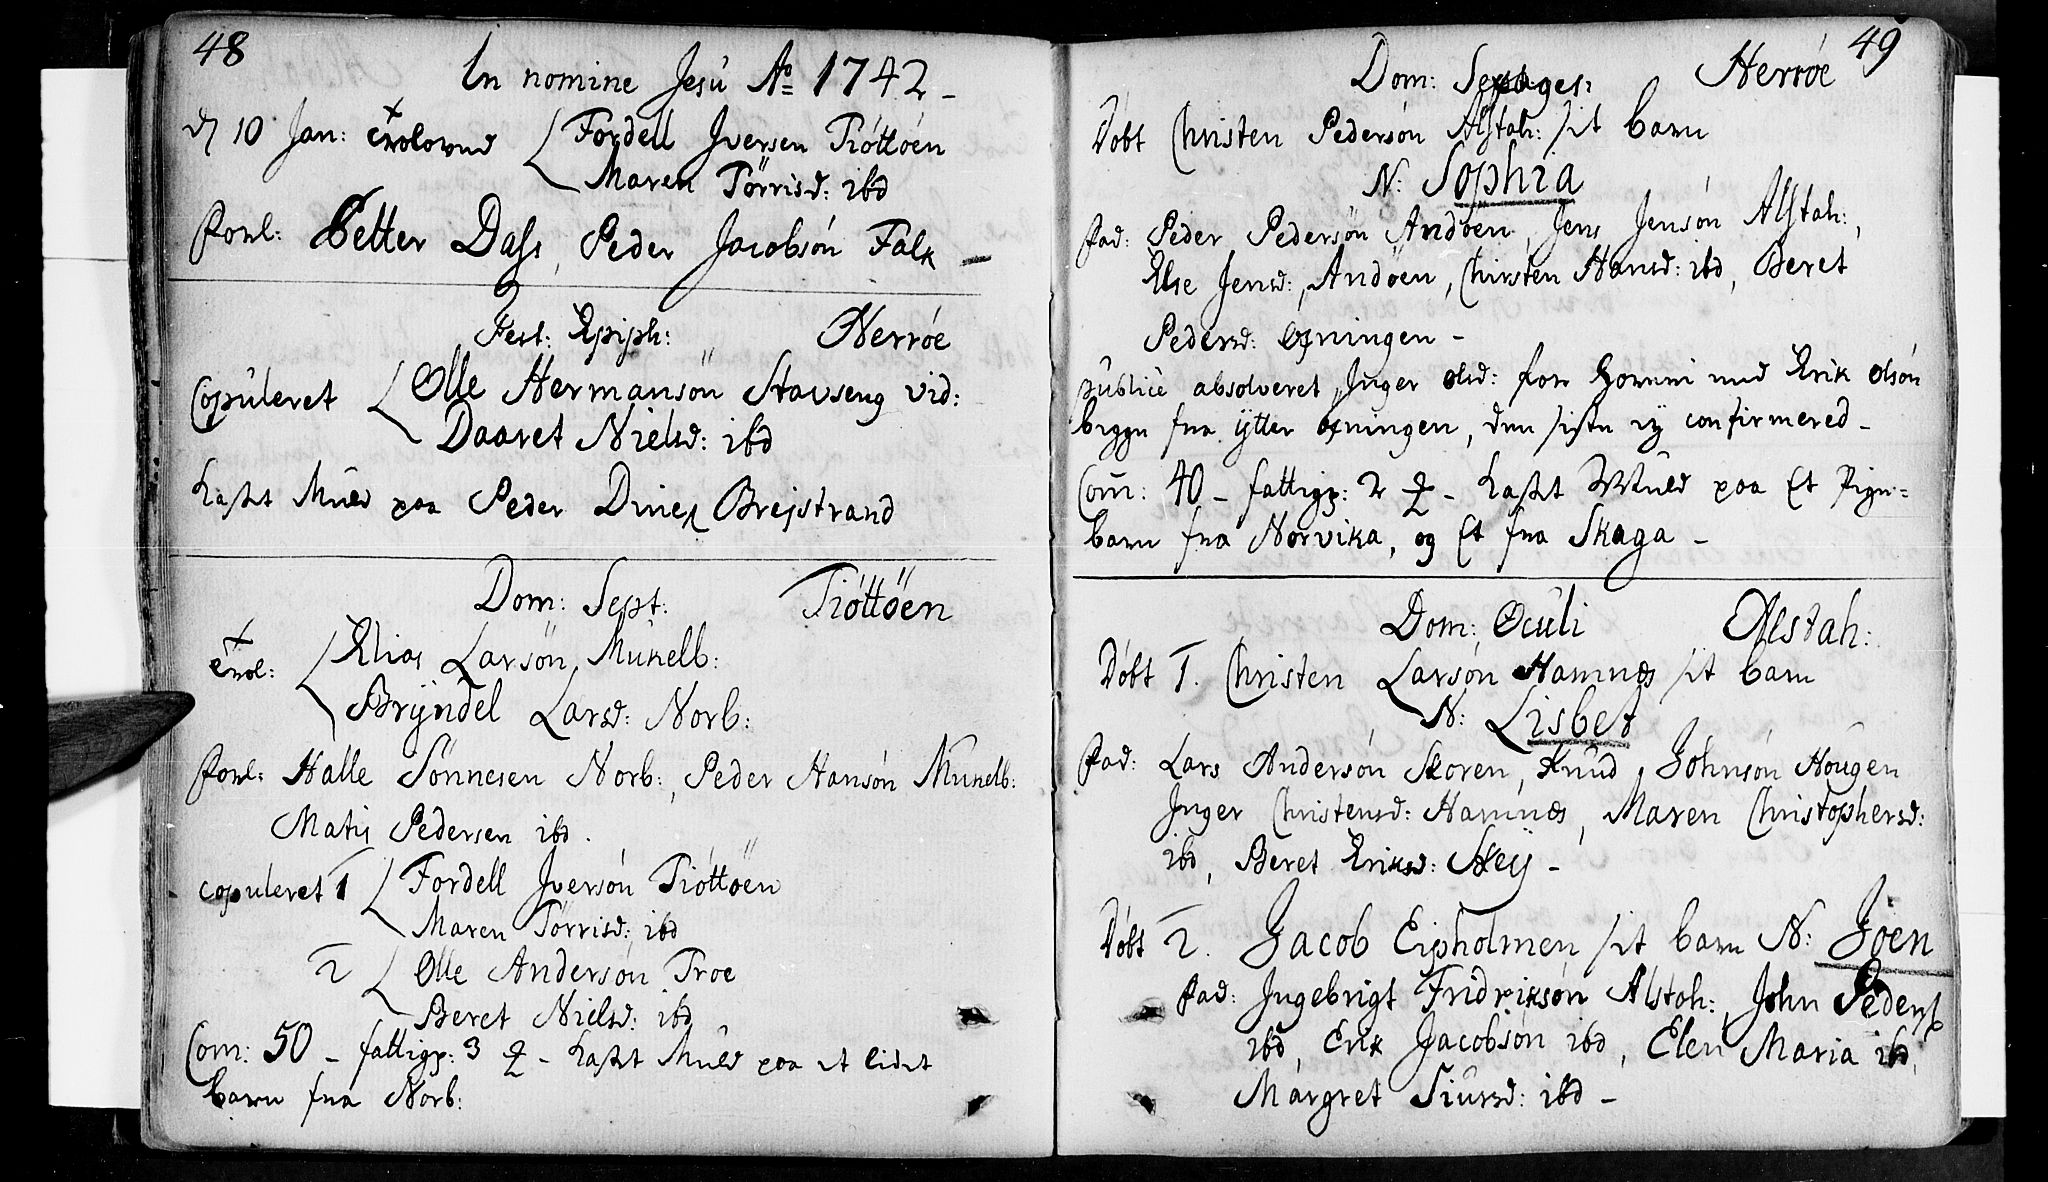 48
In nomine Jesu Ao 1742 -
D 10 Jan: Trolovved Fordell Jversen Tióttöen
Maren Törrisd: ibd
Forl: Petter Dass, Peder Jacobsón Falk -
Fest: Epiph: Herróe
Copuleret Olle Hermansón Stavseng vid:
Daaret Nielsd: ibd
Kastet Muld paa Peder Brejstrand
Dom: Sept: Tióttöen
Trol: Elias Larsön Munelb:
Brÿndel Larsd: Norb:
Forl: Halle Sönnesen Norb:, Peder Hansón Munelb:
Matis Pedersen ibd.
copuleret 1 Fordell Jversón Tióttöen
Maren Törrisd: ibd
2 Olle Andersón Troe
Beret Nielsd: ibd
Com: 50 - fattigp: 3 - Kastet Muld paa et lidet
barn fra Norb:
49
Dom: Sexages: Herróe
Döbt Christen Pedersón Alstah: sit barn
N: Sophia
Fad: Peder Pedersön Andöen, Jens Jensón Alstah:,
Else Jensd:, Andöen, Chirsten Hansd: ibd, Beret
Pedersd: Öxningen -
publicè absolveret Jnger Olsd: for med Erik Olsón
begge fra ÿtter Öxningen, den sidste ey confirmered -
Com: 40 - fattigp: 2 - Kastet Muld paa Et Pige-
barn fra Norvika, og Et fra Skaga -
Dom: Oculi Alstah:
Döbt 1. Christen Larsón Hamnæs sit barn
N: Lisbet
Fad: Lars Andersón Skoren, Knud Johnsón Hougen
Jnger Christensd: Hamnæs, Maren Christophersd:
ibd, Beret Eriksd: Skeÿ -
Döbt 2. Jacob Eipholmen sit barn N: Joen
Fad: Jngebrigt Fridriksön Alstah:, John Peders:
ibd, Erik Jacobsón ibd, Elen Maria ibd,
Margret Siursd: ibd -